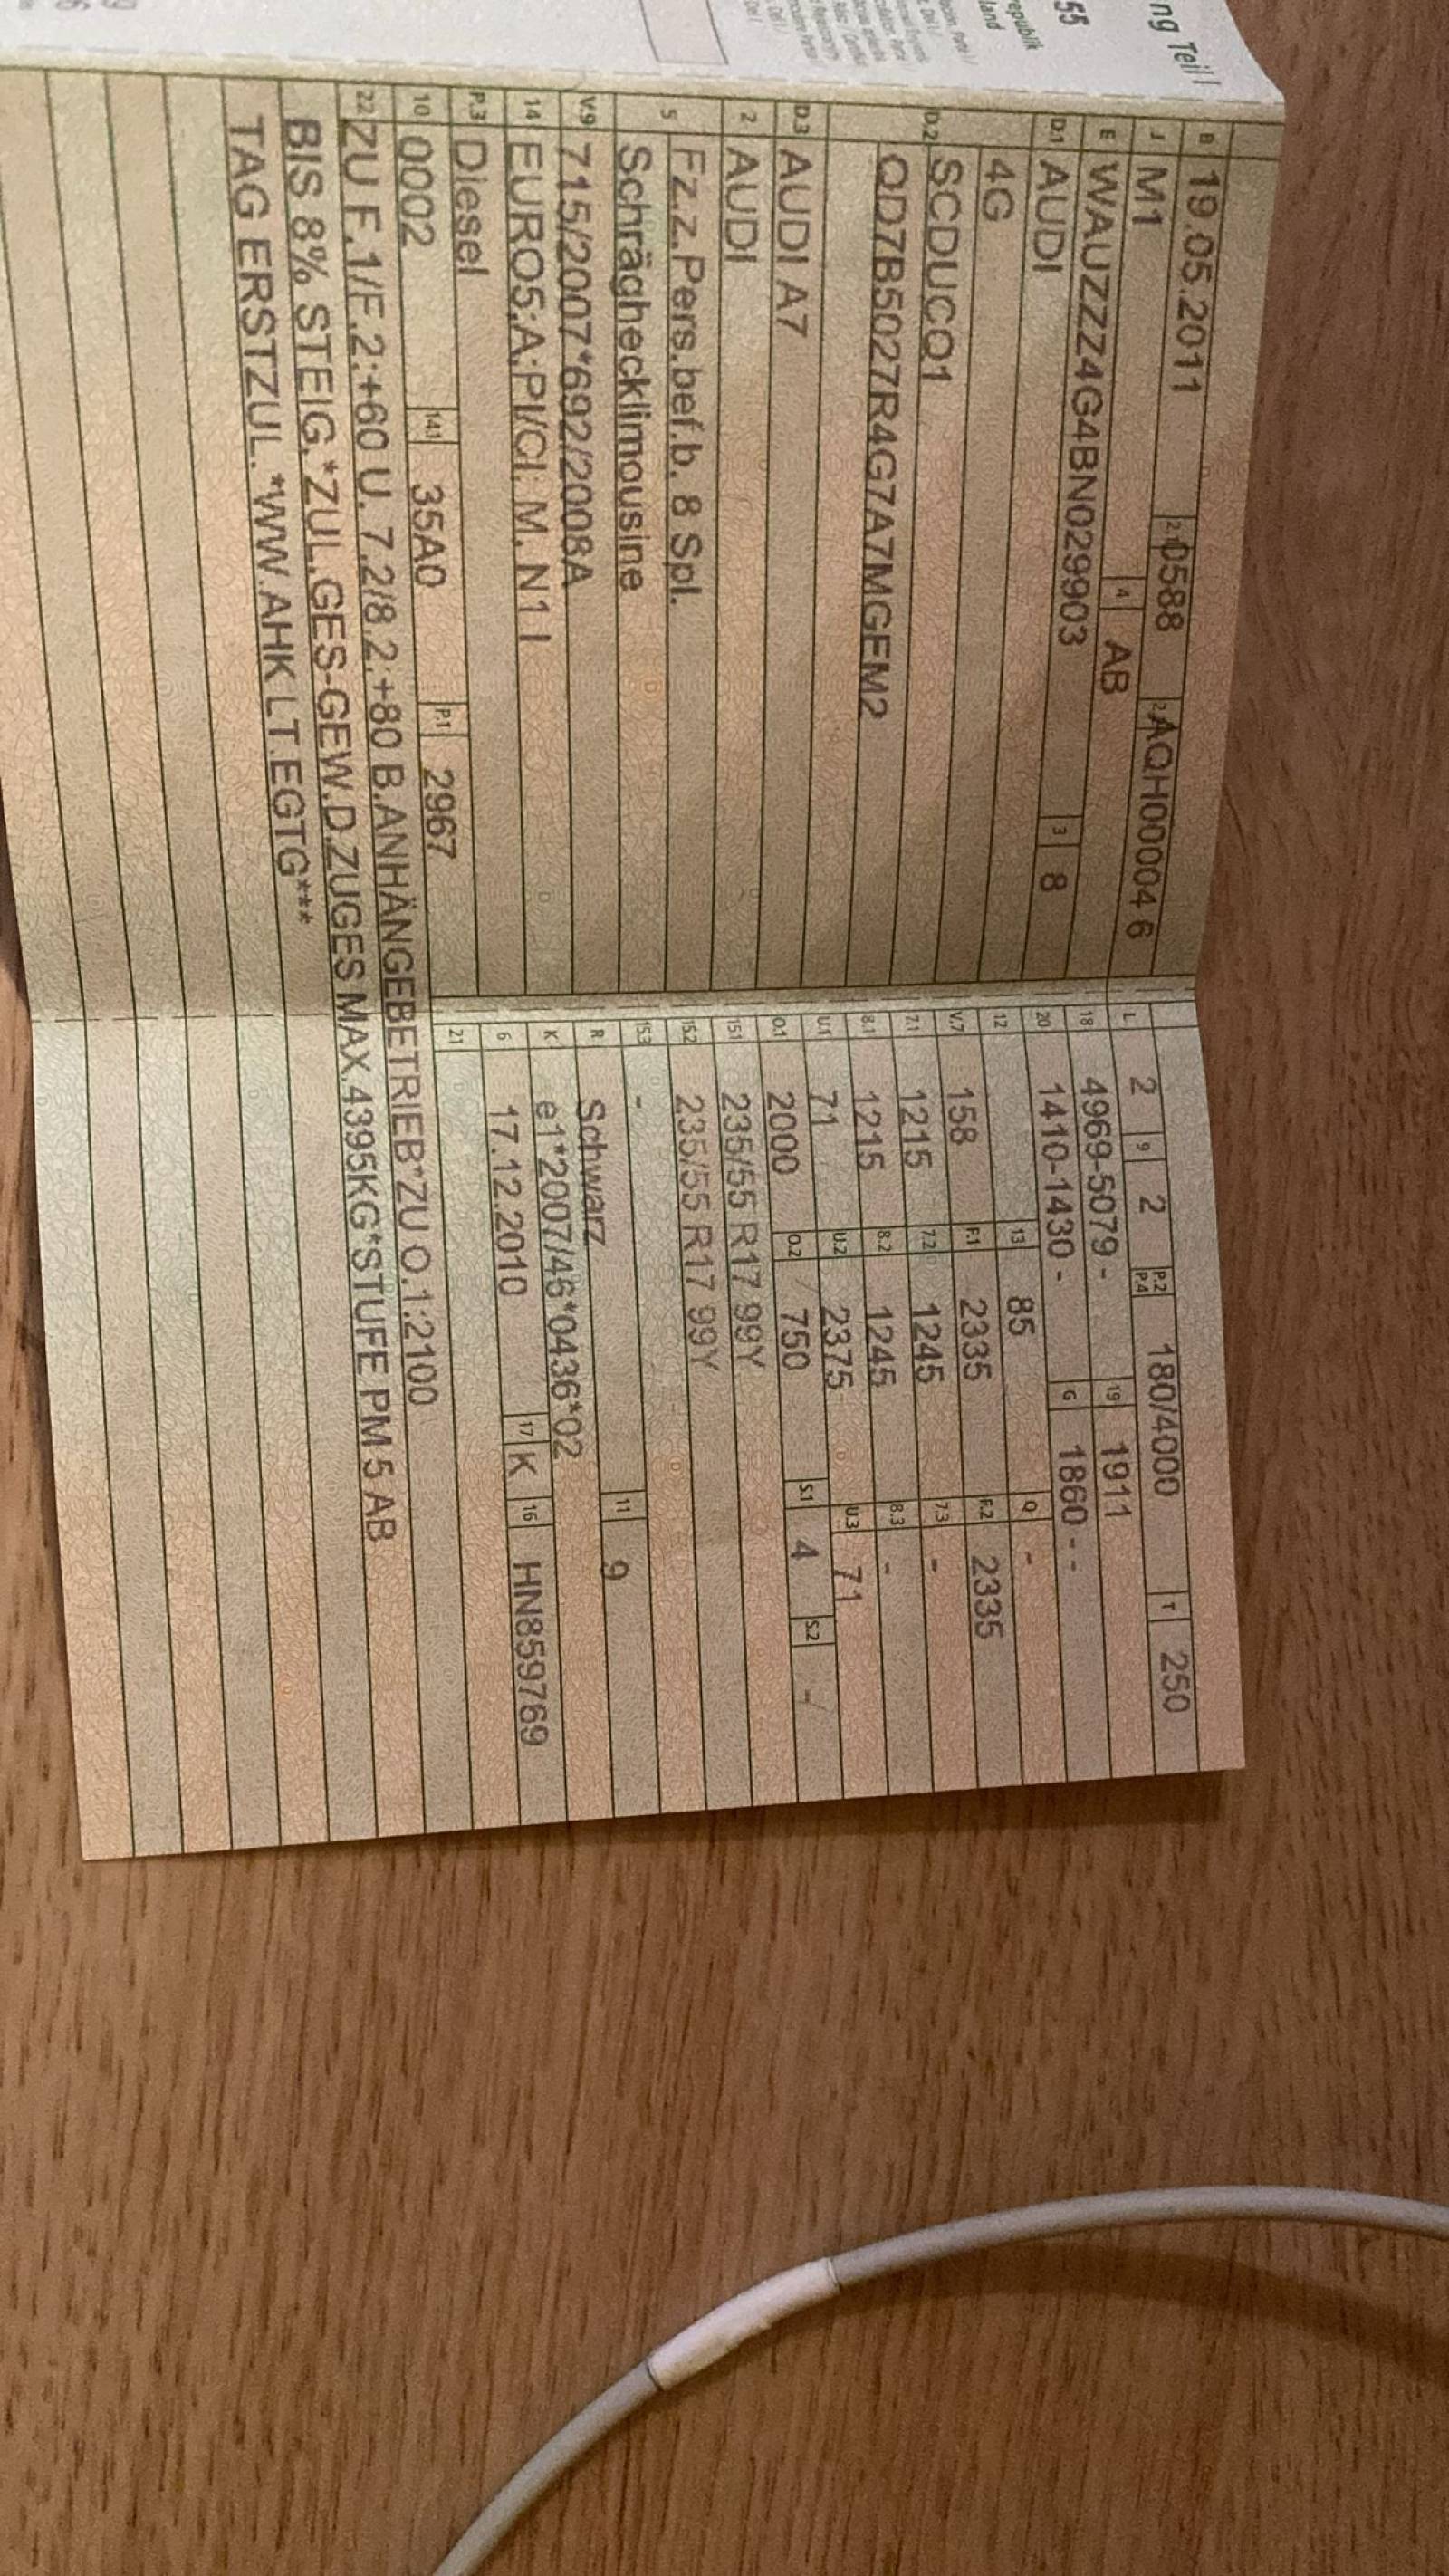 ng Teil I
55
epublik
land
B 19.05.2011 2.1 0588 AQH00004 6
J M1 4 AB
E WAUZZZ4G4BN029903 3 8
D.1 AUDI
4G
D.2 SCDUCQ1
QD7B5027R4G7A7MGEM2
D.3 AUDI A7
2 AUDI
5 Fz.z.Pers.bef.b. 8 Spl.
Schräghecklimousine
V.9 715/2007*692/2008A
14 EURO5;A;PI/CI; M, N1 I
P.3 Diesel
10 0002 14.1 35A0 P.1 2967
L 2 9 2 P.2 P.4 180/4000 T 250
18 4969-5079 - 19 1911
20 1410-1430 - G 1860 - -
12 13 85 Q -
V.7 158 F.1 2335 F.2 2335
7.1 1215 7.2 1245 7.3 -
8.1 1215 8.2 1245 8.3 -
U.1 71 U.2 2375 U.3 71
O.1 2000 O.2 750 S.1 4 S.2 -
15.1 235/55 R17 99Y
15.2 235/55 R17 99Y
15.3 -
R Schwarz 11 9
K e1*2007/46*0436*02
6 17.12.2010 17 K 16 HN859769
21
22 ZU F.1/F.2:+60 U. 7.2/8.2:+80 B.ANHÄNGEBETRIEB*ZU O.1:2100
BIS 8% STEIG.*ZUL.GES-GEW.D.ZUGES MAX.4395KG*STUFE PM 5 AB
TAG ERSTZUL.*WW.AHK LT.EGTG***